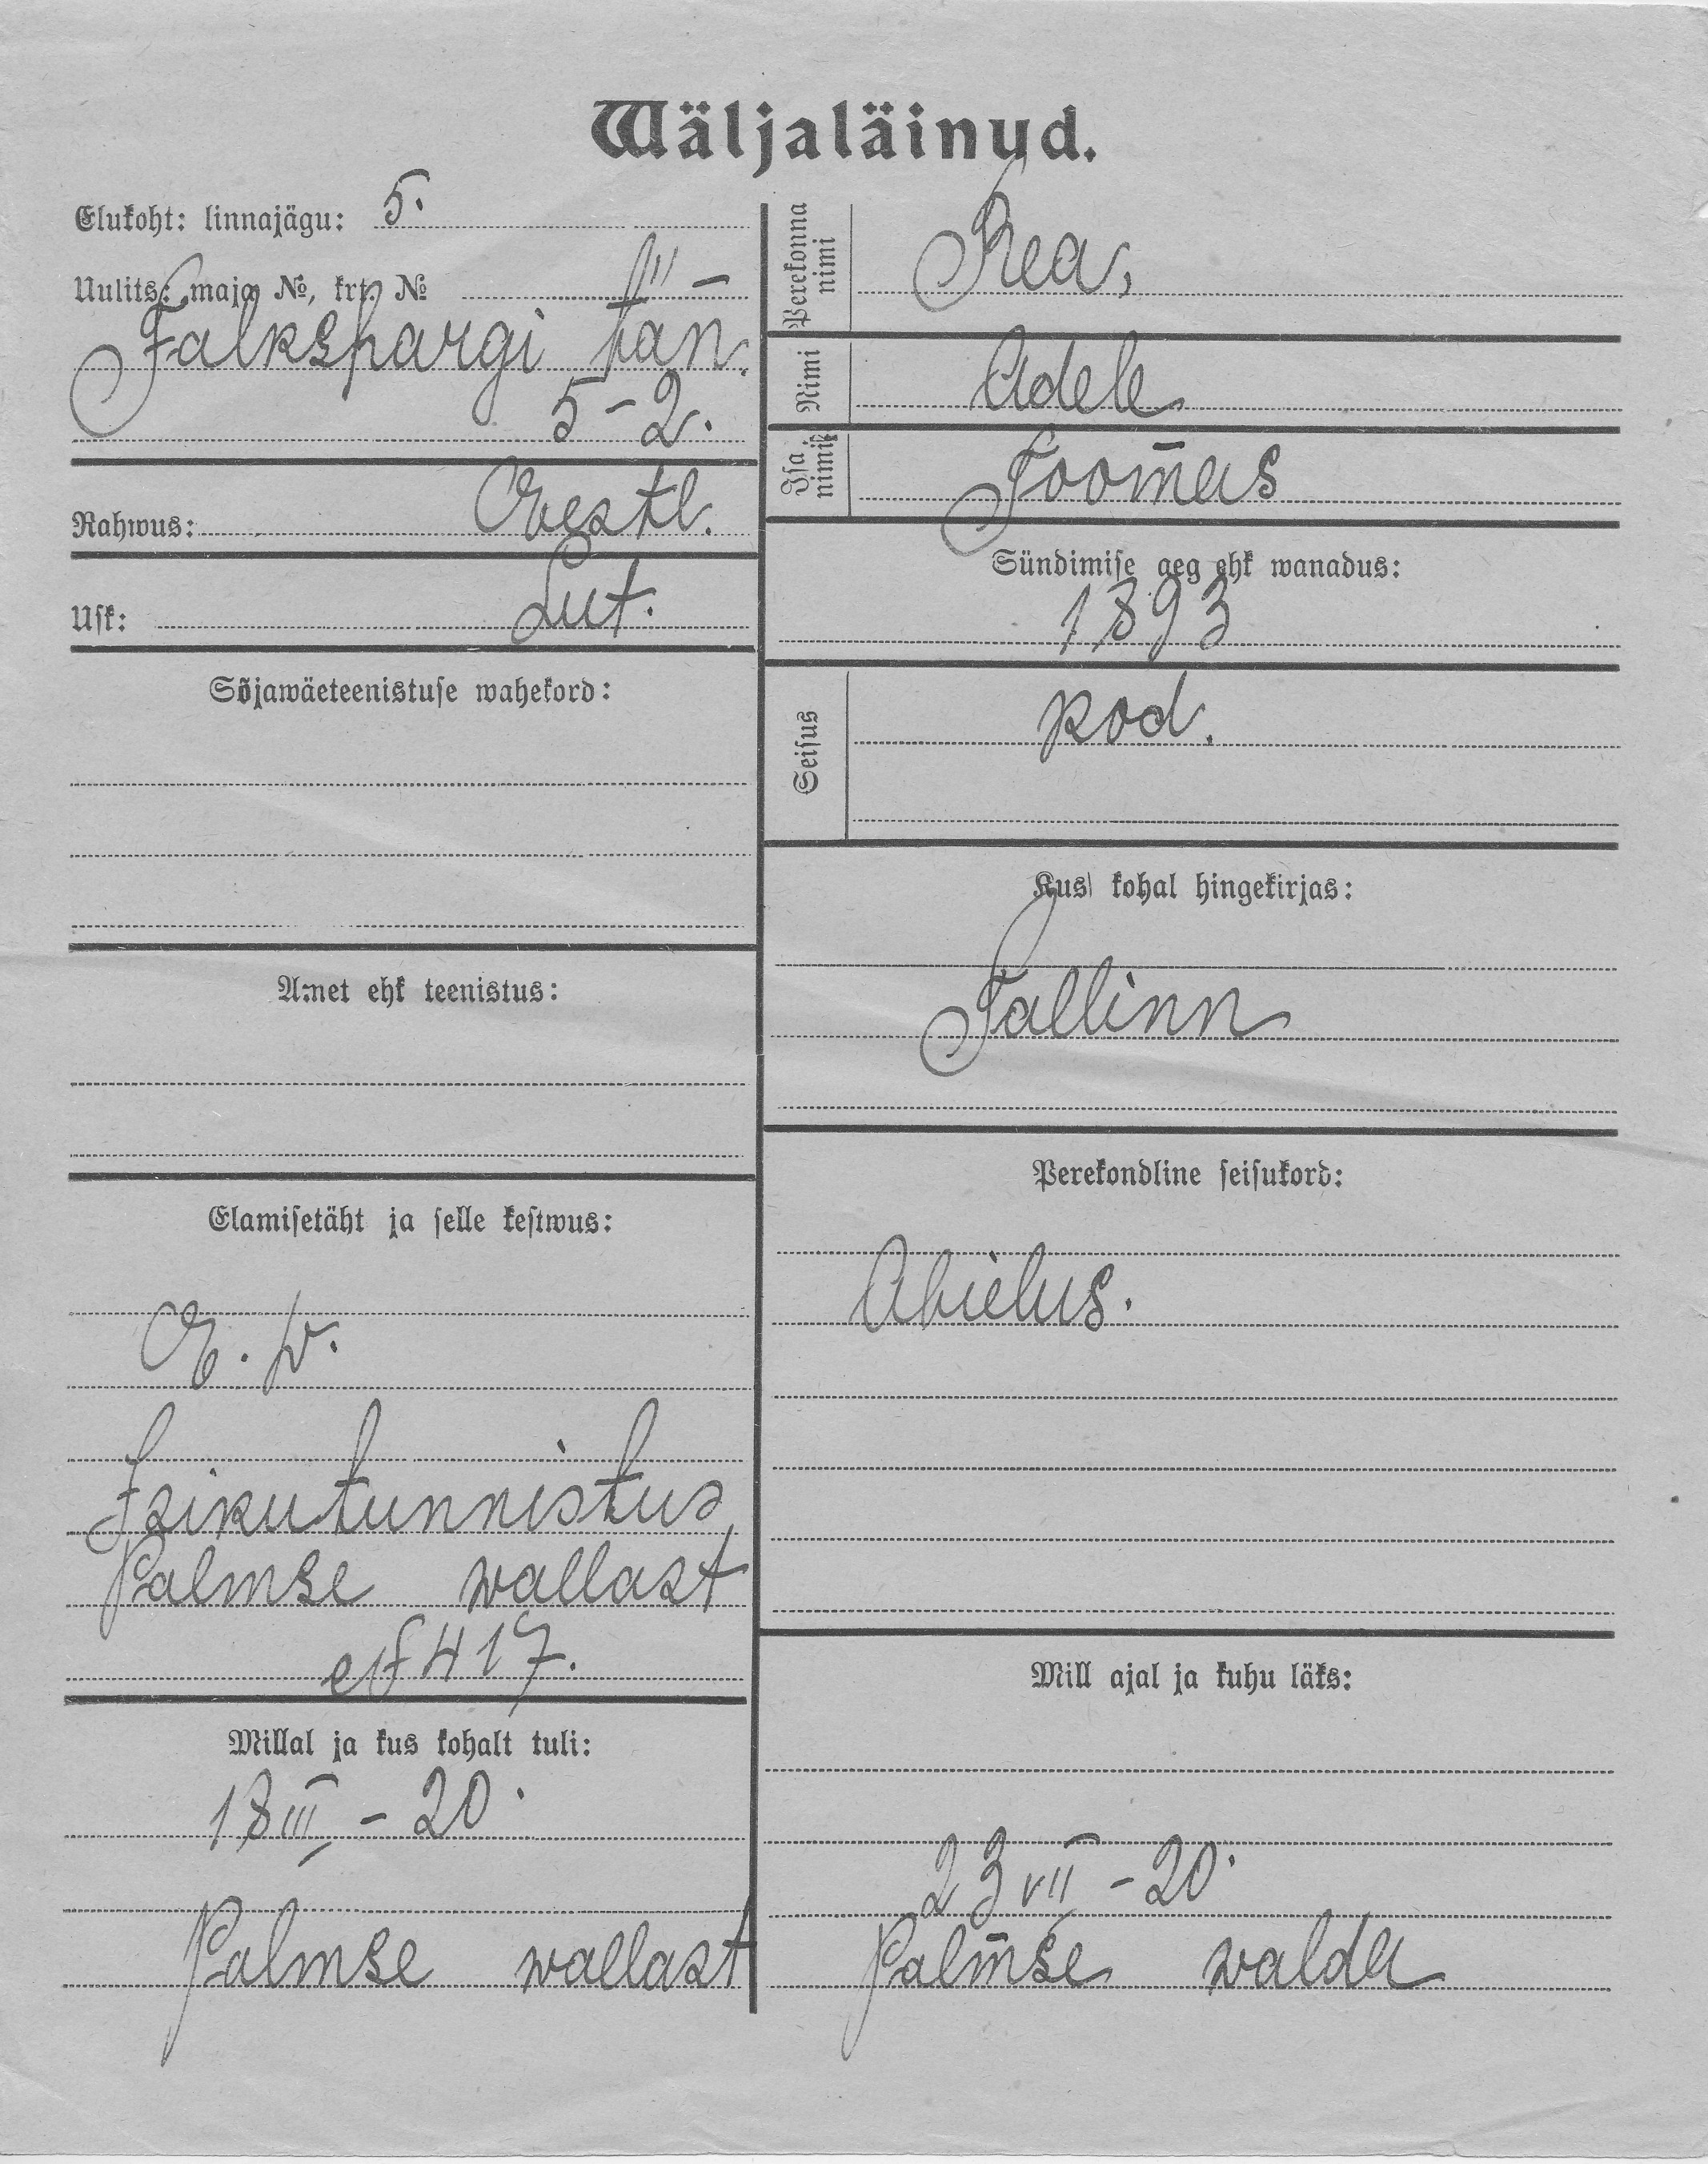 Wäljaläinud.
Elukoht: linnajägu: 5.
Uulits: maja №, krt. №
Falkspargi tän.
5-2.
Rahwus: Eestl.
Usk: Lut.
Sõjawäeteenistuse wahekord:
Amet ehk teenistus:
Elamisetäht ja selle kestwus:
E. w.
Isikutunnistus
Palmse wallast
№ 417.
Millal ja kus kohalt tuli:
18 III - 20.
Palmse wallast
Perekonna nimi
Rea,
Nimi
Adele
Isa nimi
Toomas
Sündimise aeg ehk wanadus:
1893
Seisus
kod.
Kus kohal hingekirjas:
Tallinn
Perekondline seisukord:
Abielus.
Mill ajal ja kuhu läks:
23 VII - 20.
Palmse walda